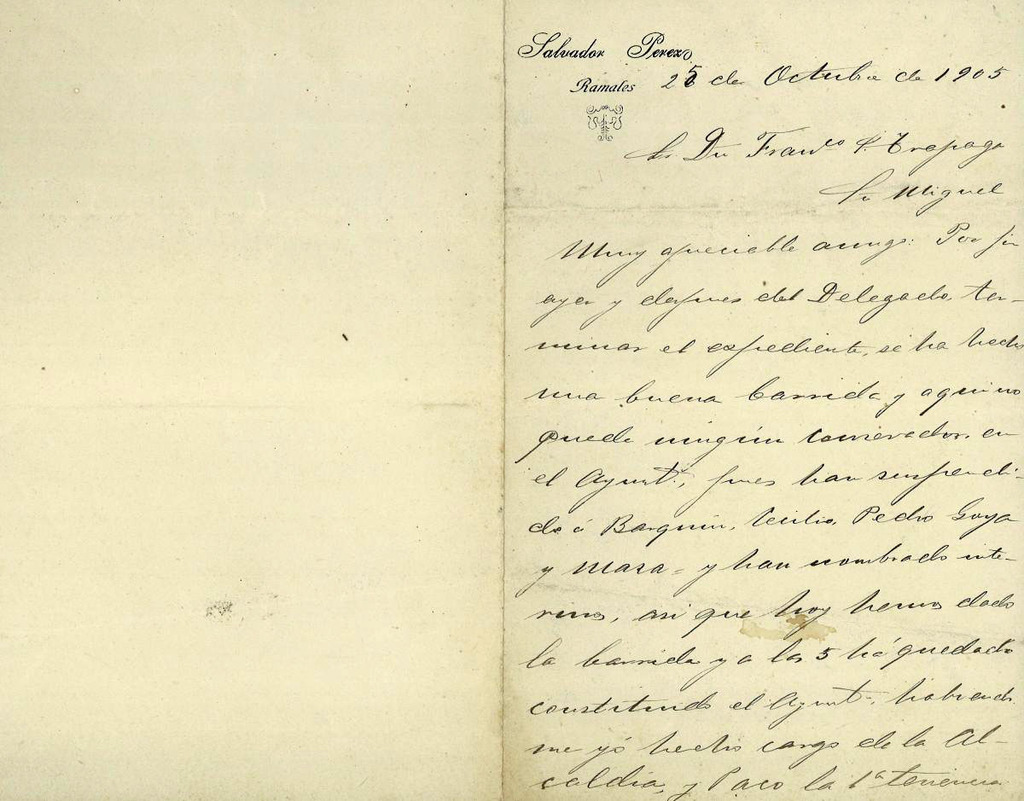 Salvador Perez
Ramales 25 de Octubre de 1905
Sr. Dn Franco P. Trapaga
Sn Miguel
Muy apreciable amigo: Por fin
ayer y despues del Delegado ter-
minar el expediente, se ha hecho
una buena barrida y aqui no
queda ningún conservador en
el Ayuntº, pues han suspendi-
do á Barquin, Cecilio, Pedro Goya
y Maza = y han nombrado inte-
rinos, asi que hoy hemos dado
la barrida y a las 5 há quedado
constituido el Ayuntº, habiendo
me yó hecho cargo de la Al-
caldia, y Paco la 1ª tenencia